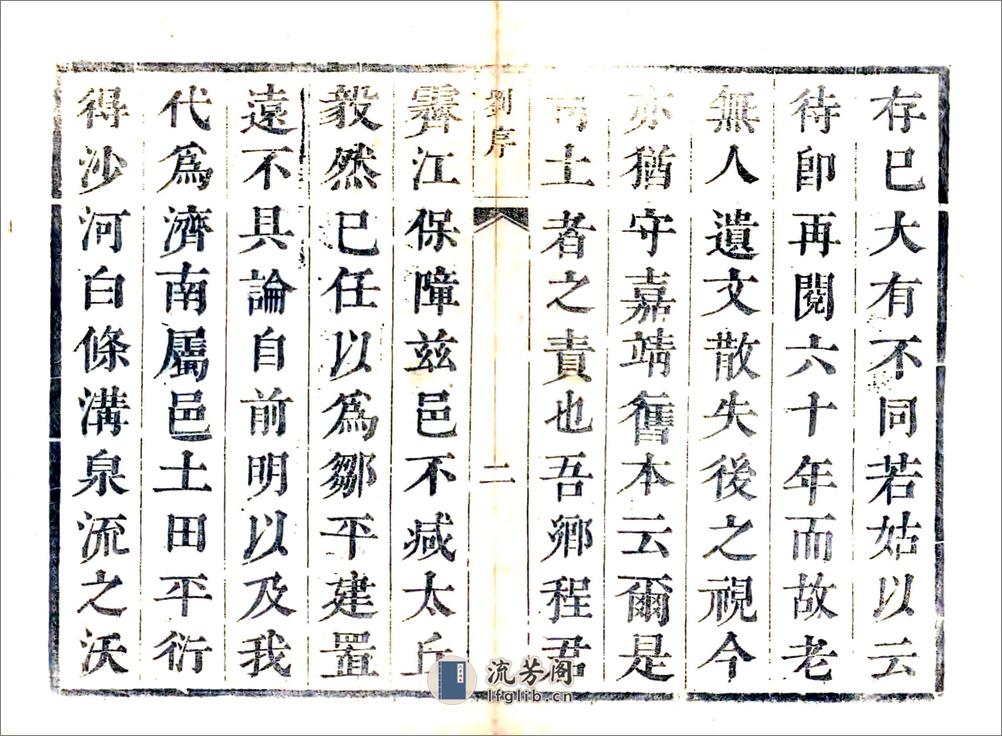 存已大有不同若姑以云
待卽再閱六十年而故老
無人遺文散失後之視今
亦猶守嘉靖舊本云爾是
司土者之責也吾鄉程君
劉序
二
霽江保障兹邑不减太丘
毅然已任以爲鄒平建置
遠不具論自前明以及我
代爲濟南屬邑土田平衍
得沙河白條溝泉流之沃
流芳阁
lfglib.cn